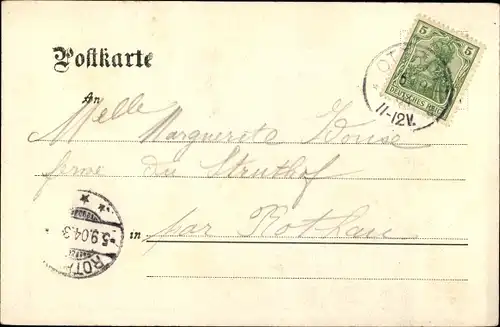 Postkarte
5 5
DEUTSCHES REICH
11-12V.
An Melle
Marguerite
ferme du Struthof
in par Rothau
5.9.04.3-
ROTH